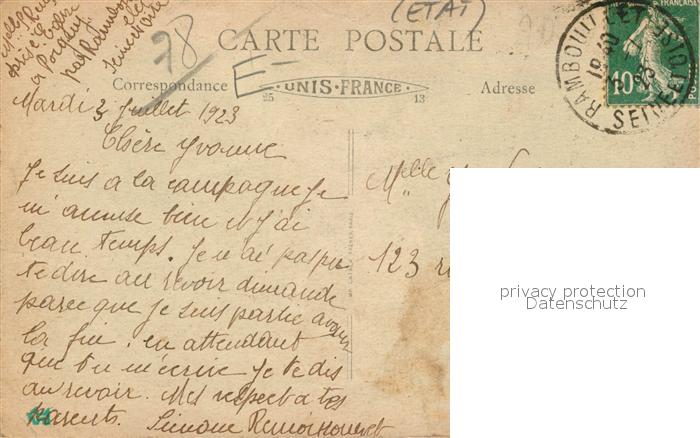 (ETAT)
78
CARTE POSTALE
E-
Correspondance
UNIS-FRANCE
25
13
Adresse
RAMBOUILLET
SEINE-ET-OISE
10
Mardi 3 Juillet 1923
Chère Yvonne
Je suis a la campagne je
m'amuse bien et j'ai
beau temps. Je n'ai pas pu
te dire au revoir dimanche
parce que je suis partie avant
la fin. en attendant
que tu m'écrive je te dis
au revoir. Mes respect a tes
parents. Simone
Melle
123 r
privacy protection
Datenschutz